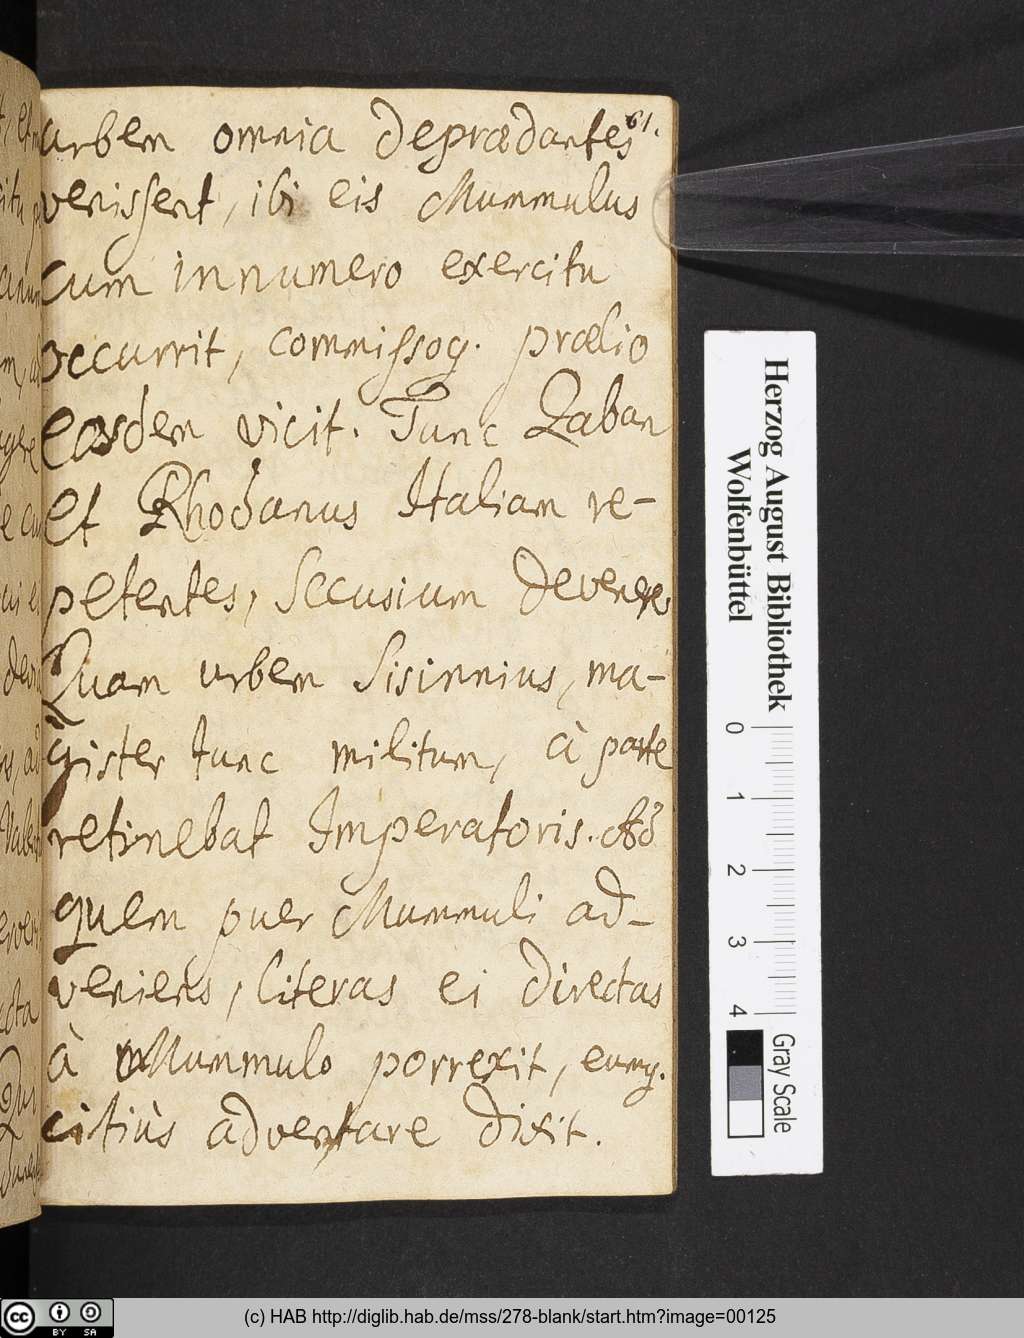 61.
urbem omnia deprædantes
venissent, ibi eis Mummulus
cum innumero exercitu
occurrit, commissoq. prælio
eosdem vicit. Tunc Zaban
et Rhodanus Italiam re-
petentes, Secusium
Quam urbem Sisinnius, ma-
gister tunc militum, à parte
retinebat Imperatoris. Ad
quem puer Mummuli ad-
veniens, literas ei directas
à Mummulo porrexit, eumq.
citiùs adventare dixit.
Herzog August Bibliothek
Wolfenbüttel
0 1 2 3 4
Gray Scale
cc BY SA
(c) HAB http://diglib.hab.de/mss/278-blank/start.htm?image=00125